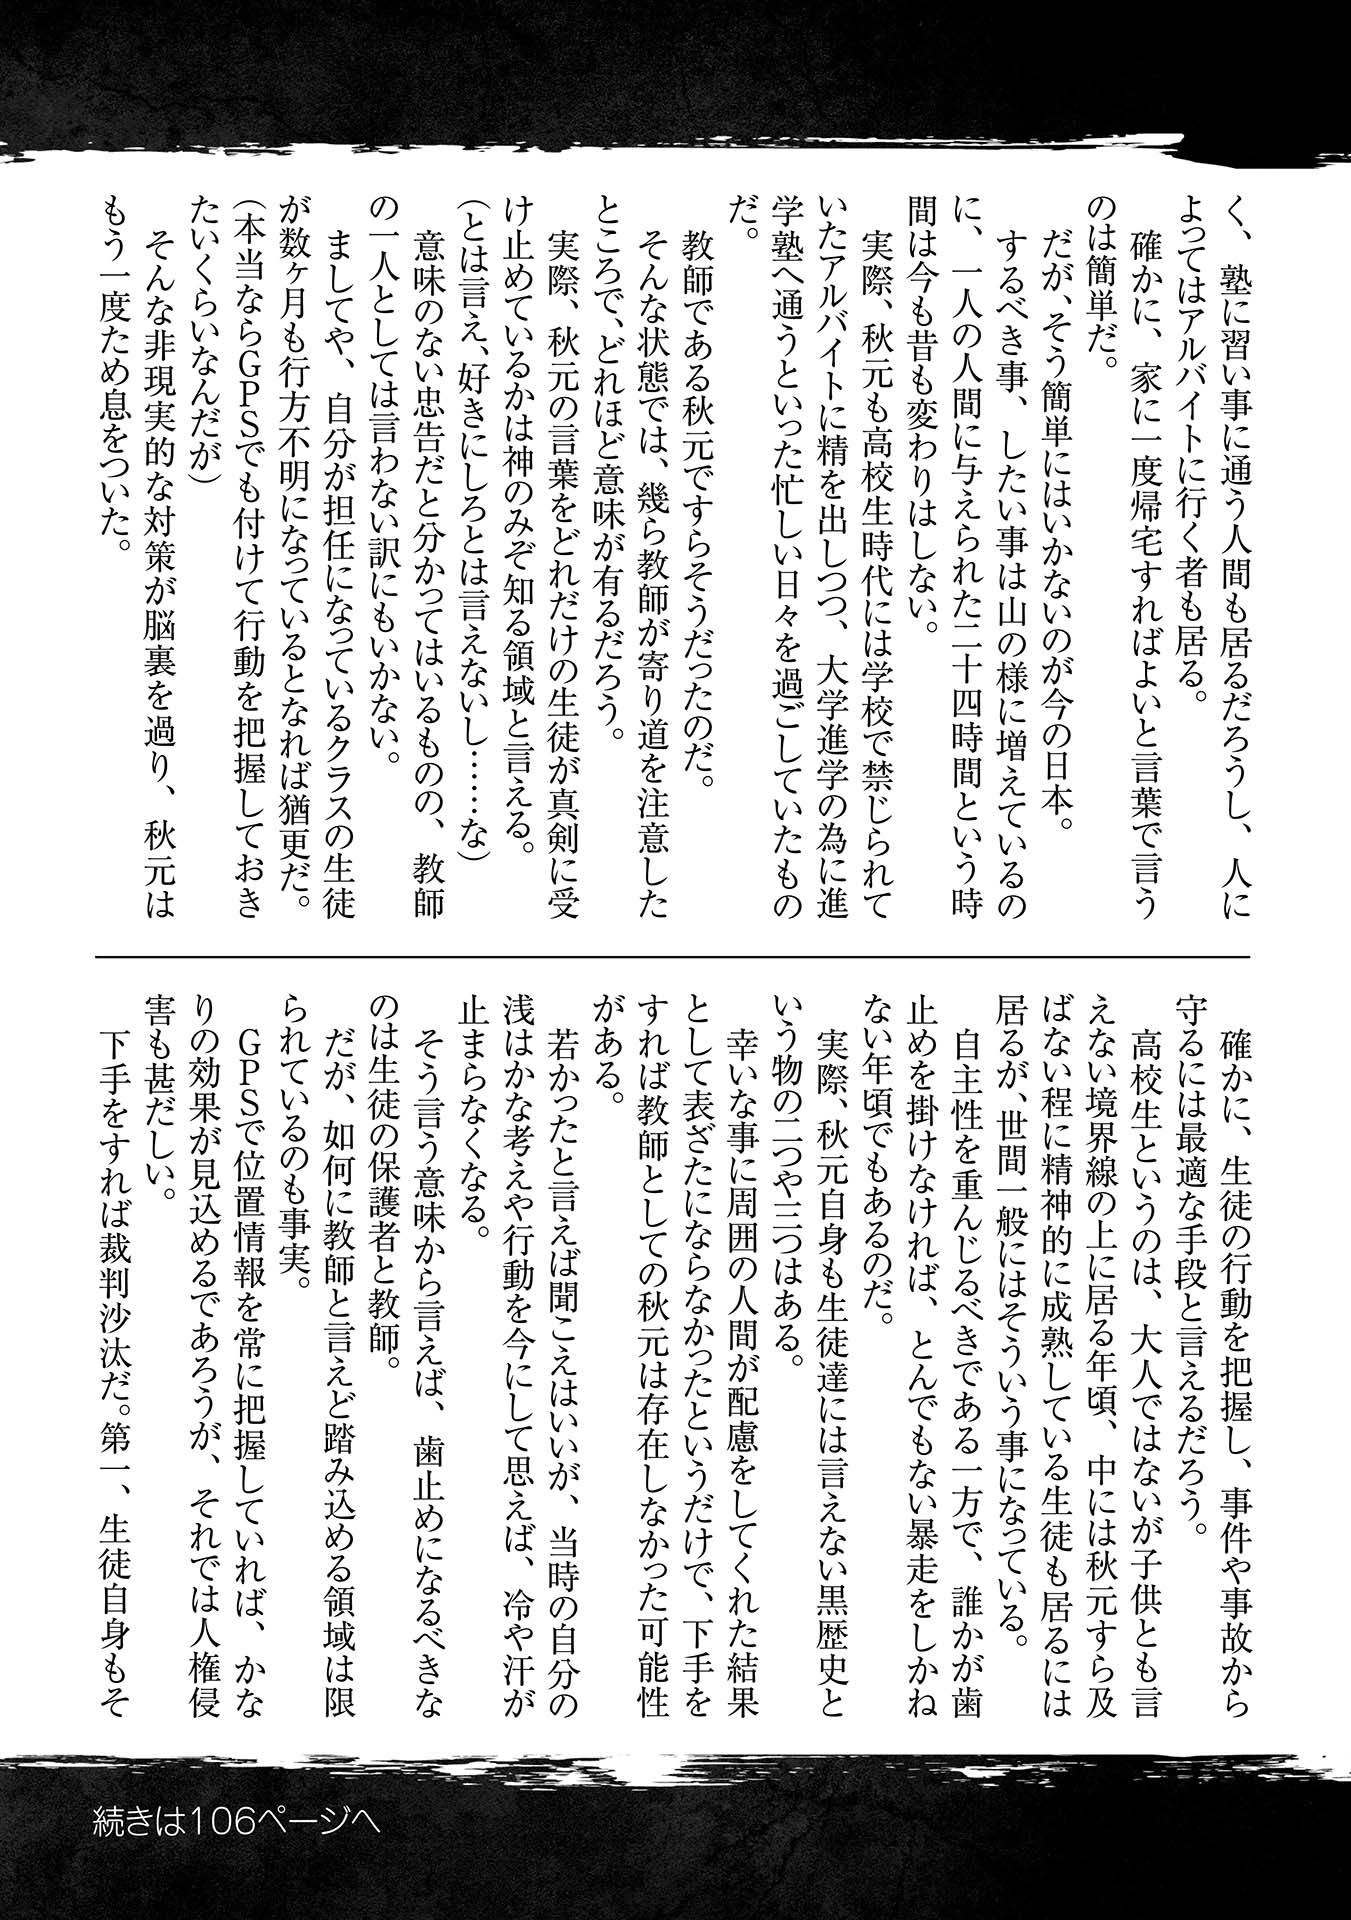 く、塾に習い事に通う人間も居るだろうし、人に
よってはアルバイトに行く者も居る。
確かに、家に一度帰宅すればよいと言葉で言う
のは簡単だ。
だが、そう簡単にはいかないのが今の日本。
するべき事、したい事は山の様に増えているの
に、一人の人間に与えられた二十四時間という時
間は今も昔も変わりはしない。
実際、秋元も高校生時代には学校で禁じられて
いたアルバイトに精を出しつつ、大学進学の為に進
学塾へ通うといった忙しい日々を過ごしていたもの
だ。
教師である秋元ですらそうだったのだ。
そんな状態では、幾ら教師が寄り道を注意した
ところで、どれほど意味が有るだろう。
実際、秋元の言葉をどれだけの生徒が真剣に受
け止めているかは神のみぞ知る領域と言える。
（とは言え、好きにしろとは言えないし……な）
意味のない忠告だと分かってはいるものの、教師
の一人としては言わない訳にもいかない。
ましてや、自分が担任になっているクラスの生徒
が数ヶ月も行方不明になっているとなれば猶更だ。
（本当ならGPSでも付けて行動を把握しておき
たいくらいなんだが）
そんな非現実的な対策が脳裏を過り、秋元は
もう一度ため息をついた。
確かに、生徒の行動を把握し、事件や事故から
守るには最適な手段と言えるだろう。
高校生というのは、大人ではないが子供とも言
えない境界線の上に居る年頃、中には秋元すら及
ばない程に精神的に成熟している生徒も居るには
居るが、世間一般にはそういう事になっている。
自主性を重んじるべきである一方で、誰かが歯
止めを掛けなければ、とんでもない暴走をしかね
ない年頃でもあるのだ。
実際、秋元自身も生徒達には言えない黒歴史と
いう物の二つや三つはある。
幸いな事に周囲の人間が配慮をしてくれた結果
として表ざたにならなかったというだけで、下手を
すれば教師としての秋元は存在しなかった可能性
がある。
若かったと言えば聞こえはいいが、当時の自分の
浅はかな考えや行動を今にして思えば、冷や汗が
止まらなくなる。
そう言う意味から言えば、歯止めになるべきな
のは生徒の保護者と教師。
だが、如何に教師と言えど踏み込める領域は限
られているのも事実。
GPSで位置情報を常に把握していれば、かな
りの効果が見込めるであろうが、それでは人権侵
害も甚だしい。
下手をすれば裁判沙汰だ。第一、生徒自身もそ
続きは106ページへ